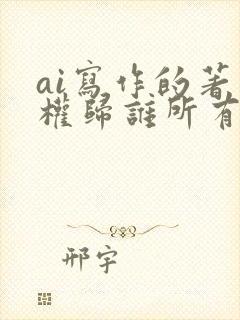 ai寫作的著
權歸誰所有
邢宇